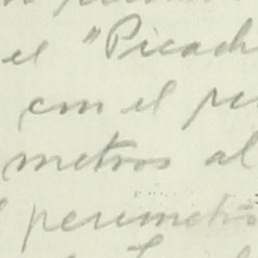 el "Picach
con el per
metros al
perimetro